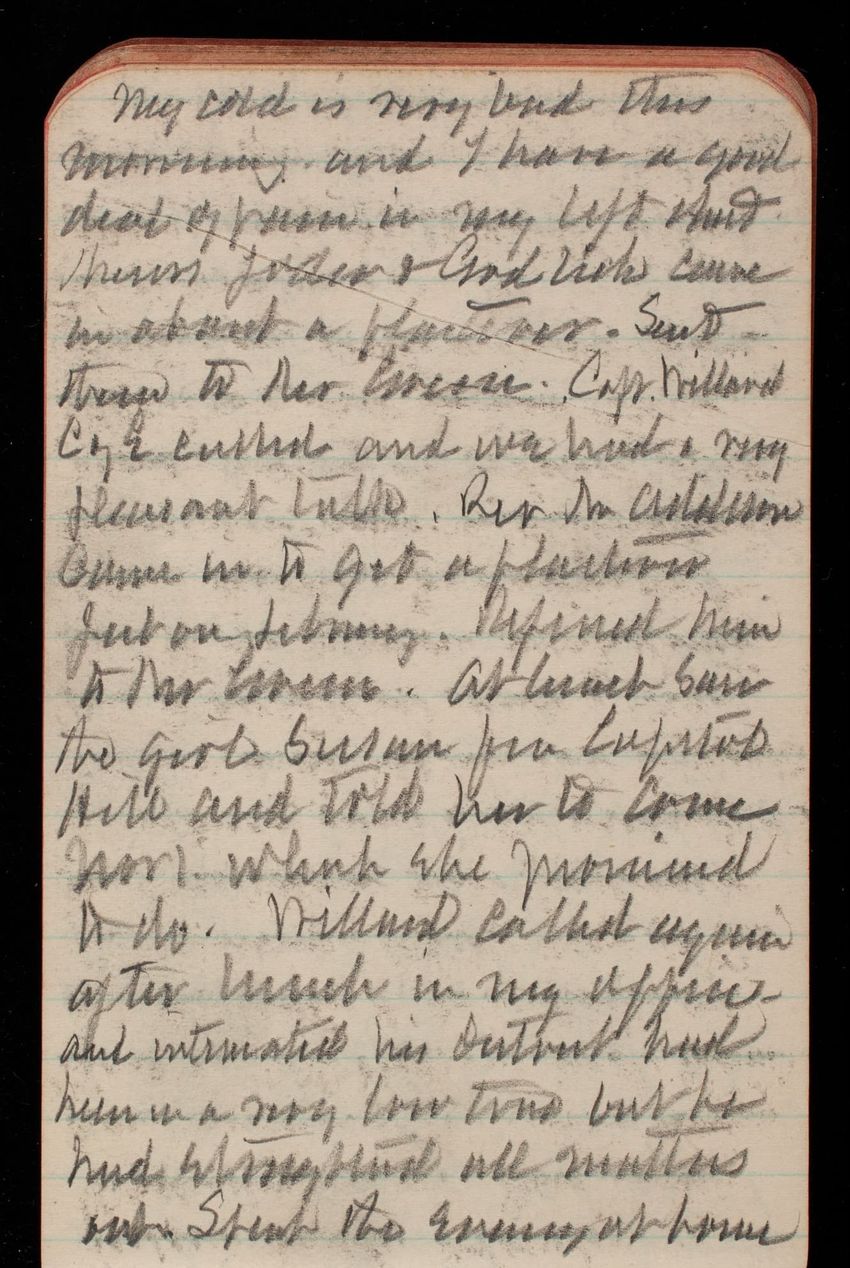 My cold is very bad this
morning and I have a good
deal of pain in my left chest
Messrs Yoder & came
in about a plasterer. Sent
them to Mr Green. Capt. Willard
Co E called and we had a very
pleasant talk. Rev Dr Addison
came in to get a plasterer
Refined him
to Mr Green. At lunch saw
the girl Susan from Capitol
Hill and told her to come
which she promised
to do. Willard called again
after lunch in my office
and intimated his District had
been in a very low tone but he
had straightened all matters
out. Spent the evening at home